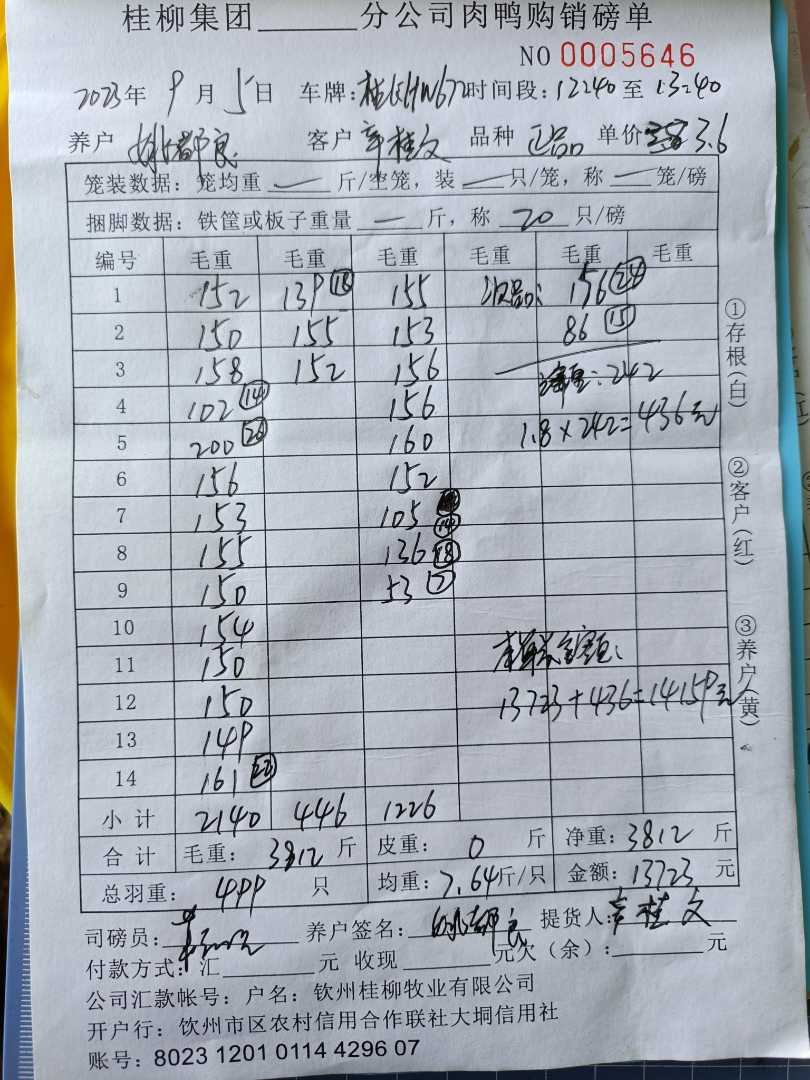 桂柳集团______分公司肉鸭购销磅单
NO 0005646
2023年 9月 5日 车牌: 时间段: 12:40 至 13:40
养户 姚都良 客户 辛桂文 品种 正品 单价 3.6
笼装数据: 笼均重 — 斤/空笼, 装 — 只/笼, 称 — 笼/磅
捆脚数据: 铁筐或板子重量 — 斤, 称 20 只/磅
编号 毛重 毛重 毛重 毛重 毛重 毛重
1 152 139 ⑱ 155 次品: 156 ㉔
2 150 155 153 86 ⑮
3 158 152 156 净重: 242
4 102 ⑭ 156
5 200 ㉖ 160 1.8×242=436元
6 156 152
7 153 105 ⑭
8 155 136 ⑱
9 150 53 ⑦
10 154
11 150 总金额:
12 150 13723+436=14159元
13 149
14 161 ㉒
小计 2140 446 1226
合计 毛重: 3812 斤 皮重: 0 斤 净重: 3812 斤
总羽重: 499 只 均重: 7.64斤/只 金额: 13723 元
司磅员: 养户签名: 姚都良 提货人: 辛桂文
付款方式: 汇______元 收现______元欠(余): ______元
公司汇款帐号: 户名: 钦州桂柳牧业有限公司
开户行: 钦州市区农村信用合作联社大垌信用社
账号: 8023 1201 0114 4296 07
①存根(白)
②客户(红)
③养户(黄)